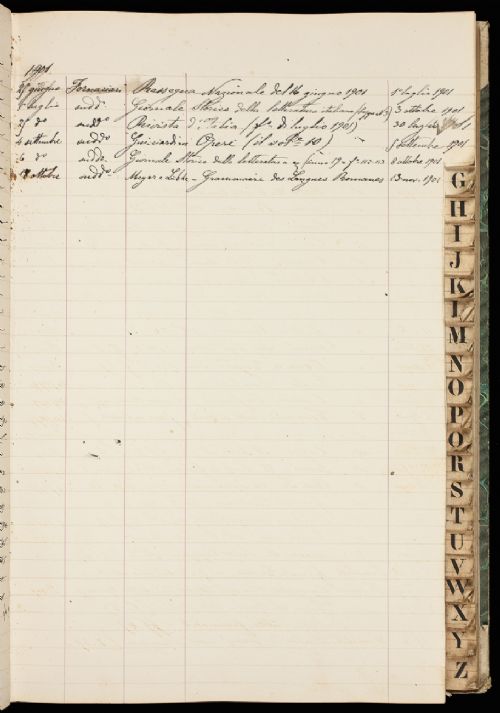 1901.
giugno Fornaciari Rassegna Nazionale del 16 giugno 1901 1° luglio 1901
luglio sudd° Giornale Storico della letteratura italiana 3 ottobre 1901
d° sudd° Rivista d'Italia (f° di luglio 1901) 30 luglio
4 settembre sudd° Guicciardini Opere (il vol° 10) settembre 1901
6 d° sudd° Giornale Storico della letteratura 8 ottobre 1901
ottobre sudd° Meyer-Lübke - Grammaire des Langues Romanes 13 nov. 1901
G
H
I
J
K
L
M
N
O
P
Q
R
S
T
U
V
W
X
Y
Z